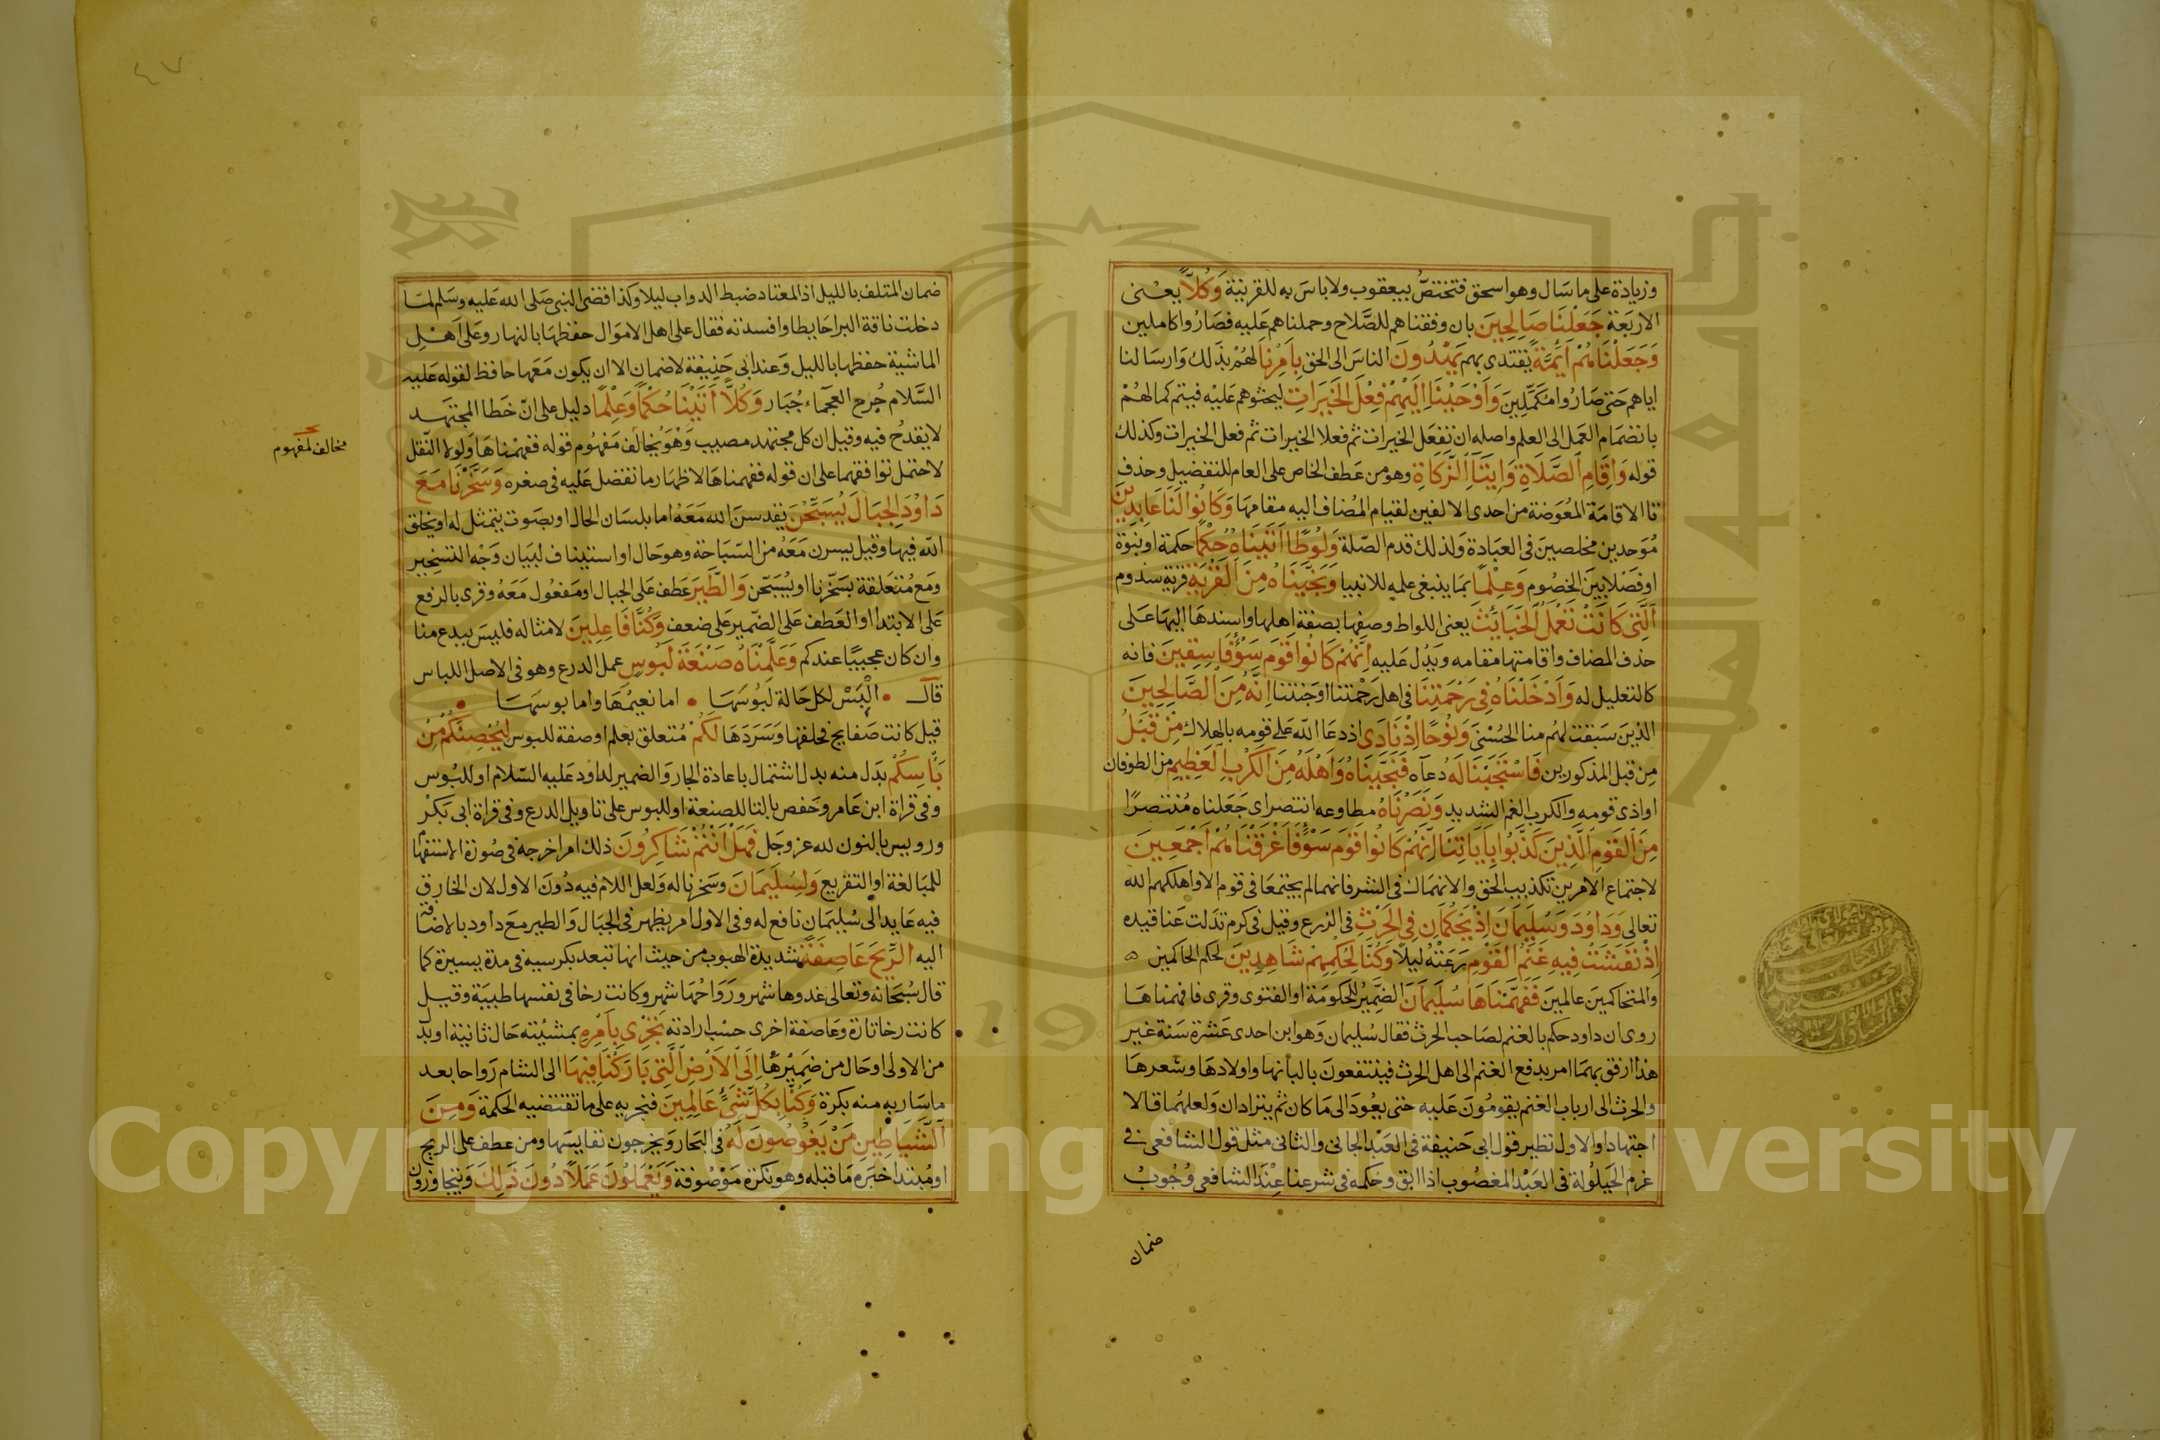 وزيادة على ما سال وهو اسحق فتختص بيعقوب ولا باس به للقرينة وَكُلاًّ يعنى
الاربعة جَعَلْنَا صَالِحِينَ بان وفقناهم للصلاح وحملناهم عليه فصاروا كاملين
وَجَعَلْنَاهُمْ اَيِمَّةً يقتدى بهم يَهْدُونَ الناس الى الحق بِاَمْرِنَا لهم بذلك وارسالنا
اياهم حتى صاروا مكملين وَاَوْحَيْنَا اِلَيْهِمْ فِعْلَ الْخَيْرَاتِ ليحثوهم عليه فيتم كمالهم
بانضمام العمل الى العلم واصله ان تفعل الخيرات ثم فعلا الخيرات ثم فعل الخيرات وكذلك
قوله وَاِقَامِ الصَّلَاةِ وَاِيتَآءِ الزَّكَاةِ وهو من عطف الخاص على العام للتفضيل وحذف
تا الاقامة المعوضة من احدى الالفين لقيام المضاف اليه مقامها وَكَانُوا لَنَا عَابِدِينَ
موحدين مخلصين فى العبادة ولذلك قدم الصلة وَلُوطًا اَتَيْنَاهُ حُكْمًا حكمة او نبوة
او فصلا بين الخصوم وَعِلْمًا بما ينبغى علمه للانبيا وَنَجَّيْنَاهُ مِنَ الْقَرْيَةِ قرية سدوم
اَلَّتِى كَانَتْ تَعْمَلُ الْخَبَايِثَ يعنى اللواط وصفها بصفة اهلها واسندها اليها على
حذف المضاف واقامتها مقامه ويدل عليه اِنَّهُمْ كَانُوا قَوْمَ سَوْءٍ فَاسِقِينَ فانه
كالتعليل له وَاَدْخَلْنَاهُ فِى رَحْمَتِنَا فى اهل رحمتنا او جنتنا اِنَّهُ مِنَ الصَّالِحِينَ
الذين سبقت لهم منا الحسنى وَنُوحًا اِذْ نَادَى اذ دعا الله على قومه بالهلاك مِنْ قَبْلُ
من قبل المذكورين فَاسْتَجَبْنَا لَهُ دعاه فَنَجَّيْنَاهُ وَاَهْلَهُ مِنَ الْكَرْبِ الْعَظِيمِ من الطوفان
او اذى قومه والكرب الغم الشديد وَنَصَرْنَاهُ مطاوعه انتصر اى جعلناه منتصرا
مِنَ الْقَوْمِ الَّذِينَ كَذَّبُوا بِاَيَاتِنَا اِنَّهُمْ كَانُوا قَوْمَ سَوْءٍ فَاَغْرَقْنَاهُمْ اَجْمَعِينَ
لاجتماع الامرين تكذيب الحق والانهماك فى الشر فانهما لم يجتمعا فى قوم الا واهلكهم الله
تعالى وَدَاوُدَ وَسُلَيْمَانَ اِذْ يَحْكُمَانِ فِى الْحَرْثِ فى الزرع وقيل فى كرم تدلت عناقيده
اِذْ نَفَشَتْ فِيهِ غَنَمُ الْقَوْمِ رعته ليلا وَكُنَّا لِحُكْمِهِمْ شَاهِدِينَ لحكم الحاكمين
والمتحاكمين عالمين فَفَهَّمْنَاهَا سُلَيْمَانَ الضمير للحكومة او الفتوى وقرى فافهمناها
روى ان داود حكم بالغنم لصاحب الحرث فقال سليمان وهو ابن احدى عشرة سنة غير
هذا ارفق بهما امر بدفع الغنم الى اهل الحرث فينتفعون بالبانها واولادها وشعرها
والحرث الى ارباب الغنم يقومون عليه حتى يعود الى ما كان ثم يترادان ولعلهما قالا
اجتهادا والاول نظير قول ابى حنيفة فى العبد الجانى والثانى مثل قول الشافعى فى
غرم الحيلولة فى العبد المغصوب اذا ابق وحكمه فى شرعنا عند الشافعى وجوب
ضمان
ضمان المتلف بالليل اذ المعتاد ضبط الدواب ليلا وكذا قضى النبى صلى الله عليه وسلم لما
دخلت ناقة البرا حايطا وافسدته فقال على اهل الاموال حفظها بالنهار وعلى اهل
الماشية حفظها بالليل وعند ابى حنيفة لا ضمان الا ان يكون معها حافظ لقوله عليه
السلام جرح العجماء جبار وَكُلاًّ اَتَيْنَا حُكْمًا وَعِلْمًا دليل على ان خطا المجتهد
لا يقدح فيه وقيل ان كل مجتهد مصيب وهو يخالف مفهوم قوله ففهمناها ولولا النقل
مخالف لمفهوم
لاحتمل توافقهما على ان قوله ففهمناها لاظهار ما تفضل عليه فى صغره وَسَخَّرْنَا مَعَ
دَاوُدَ الْجِبَالَ يُسَبِّحْنَ يقدسن الله معه اما بلسان الحال او بصوت يتمثل له او يخلق
الله فيها وقيل يسرن معه من السباحة وهو حال او استيناف لبيان وجه التسخير
ومع متعلقة بسخرنا او يسبحن وَالطَّيْرَ عطف على الجبال او مفعول معه وقرى بالرفع
على الابتدا او العطف على الضمير على ضعف وَكُنَّا فَاعِلِينَ لامثاله فليس ببدع منا
وان كان عجيبا عندكم وَعَلَّمْنَاهُ صَنْعَةَ لَبُوسٍ عمل الدرع وهو فى الاصل اللباس
قال • اِلْبَسْ لكل حالة لبوسها • اما نعيمها واما بوسها •
قيل كانت صفايح فحلقها وسردها لَكُمْ متعلق بعلم او صفة للبوس لِيُحْصِنَكُمْ مِنْ
بَأْسِكُمْ بدل منه بدل اشتمال باعادة الجار والضمير لداود عليه السلام او للبوس
وفى قراة ابن عامر وحفص بالتا للصنعة او للبوس على تاويل الدرع وفى قراة ابى بكر
ورويس بالنون لله عز وجل فَهَلْ اَنْتُمْ شَاكِرُونَ ذلك امر اخرجه فى صورة الاستفها
للمبالغة او التقريع وَلِسُلَيْمَانَ وسخرنا له ولعل اللام فيه دون الاول لان الخارق
فيه عايد الى سليمان نافع له وفى الاول امر يظهر فى الجبال والطير مع داود بالاضافة
اليه الرِّيحَ عَاصِفَةً شديدة الهبوب من حيث انها تبعد بكرسيه فى مدة يسيرة كما
قال سبحانه وتعالى غدوها شهر ورواحها شهر وكانت رخا فى نفسها طيبة وقيل
كانت رخا تارة وعاصفة اخرى حسب ارادته تَجْرِى بِاَمْرِهِ بمشيئته حال ثانية او بدل
من الاولى او حال من ضميرها اِلَى الْاَرْضِ الَّتِى بَارَكْنَا فِيهَا الى الشام رواحا بعد
ما سار به منه بكرة وَكُنَّا بِكُلِّ شَىْءٍ عَالِمِينَ فنجريه على ما تقتضيه الحكمة وَمِنَ
الشَّيَاطِينِ مَنْ يَغُوصُونَ لَهُ فى البحار ويخرجون نفايسها ومن عطف على الريح
او مبتدا خبره ما قبله وهو نكرة موصوفة وَيَعْمَلُونَ عَمَلاً دُونَ ذَلِكَ ويتجاوزون
٤٧
Copyright © King Saud University
جامعة الملك سعود
1957